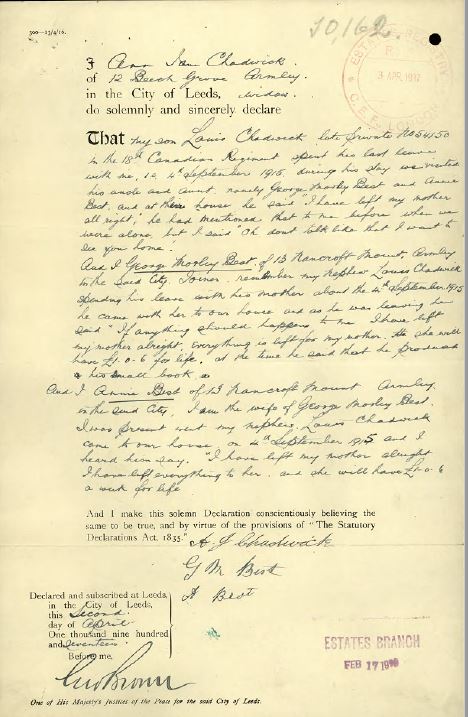 300—13/4/16.
10,162
ESTATES REGISTRY
R
3 APR. 1917
C.E.F.
I Ann Jane Chadwick.
of 12 Beech Grove Armley.
in the City of Leeds, widow.
do solemnly and sincerely declare
That my son Louis Chadwick late Private No 54150
in the 18th Canadian Regiment spent his last leave
with me, 4th September 1915, during his stay we visited
his uncle and aunt, namely George Morley Best and Annie
Best, and at their house he said "I have left my mother
all right," he had mentioned that to me before when we
were alone, but I said "Oh dont talk like that I want to
see you home".
And I George Morley Best of 13 Bancroft Mount, Armley
in the said City, Joiner. remember my nephew Louis Chadwick
spending his leave with his mother about the 4th September 1915
he came with her to our house and as he was leaving he
said "If anything should happen to me I have left
my mother alright, everything is left for my mother. she will
have £1.0.6 for life, at the time he said that he produced
his small book
And I Annie Best of 13 Bancroft Mount Armley.
in the said City, I am the wife of George Morley Best.
I was present when my nephew, Louis Chadwick
came to our house, on 4th September 1915 and I
heard him say. "I have left my mother alright
I have left everything to her. and she will have £1-0-6
a week for life
And I make this solemn Declaration conscientiously believing the
same to be true, and by virtue of the provisions of "The Statutory
Declarations Act, 1835."
A. J Chadwick
G M Best
A Best
Declared and subscribed at Leeds,
in the City of Leeds,
this Second
day of April
One thousand nine hundred
and seventeen
Before me,
Geo Brown
One of His Majesty's Justices of the Peace for the said City of Leeds.
ESTATES BRANCH
FEB 17